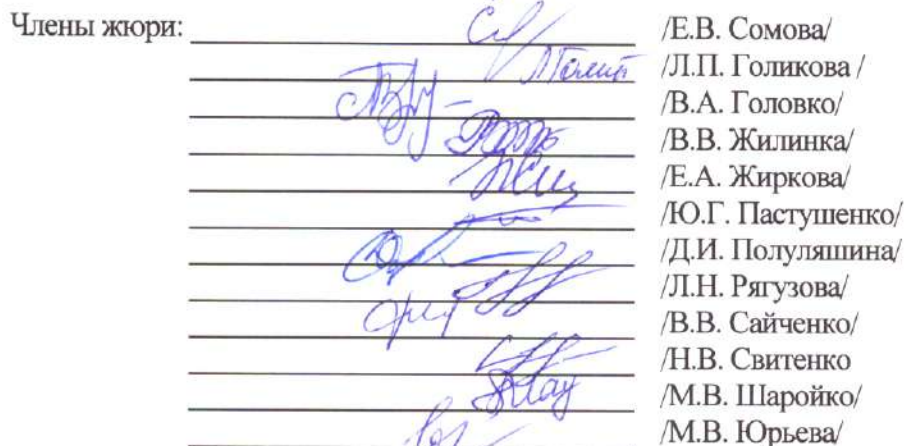 Члены жюри: /Е.В. Сомова/
/Л.П. Голикова /
/В.А. Головко/
/В.В. Жилинка/
/Е.А. Жиркова/
/Ю.Г. Пастушенко/
/Д.И. Полуляшина/
/Л.Н. Рягузова/
/В.В. Сайченко/
/Н.В. Свитенко
/М.В. Шаройко/
/М.В. Юрьева/